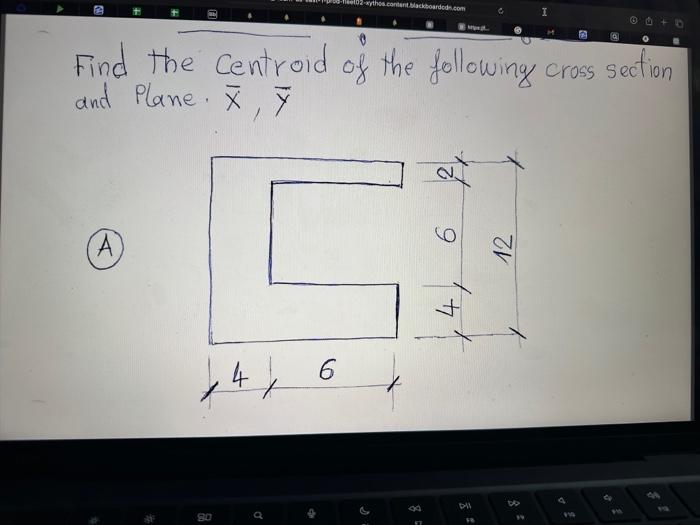 prod-fleet02-xythos.content.blackboardcdn.com
Find the Centroid of the following cross section
and Plane. X̅, Y̅
A
2
6
4
12
4
6
F8
F9
F10
F11
F12